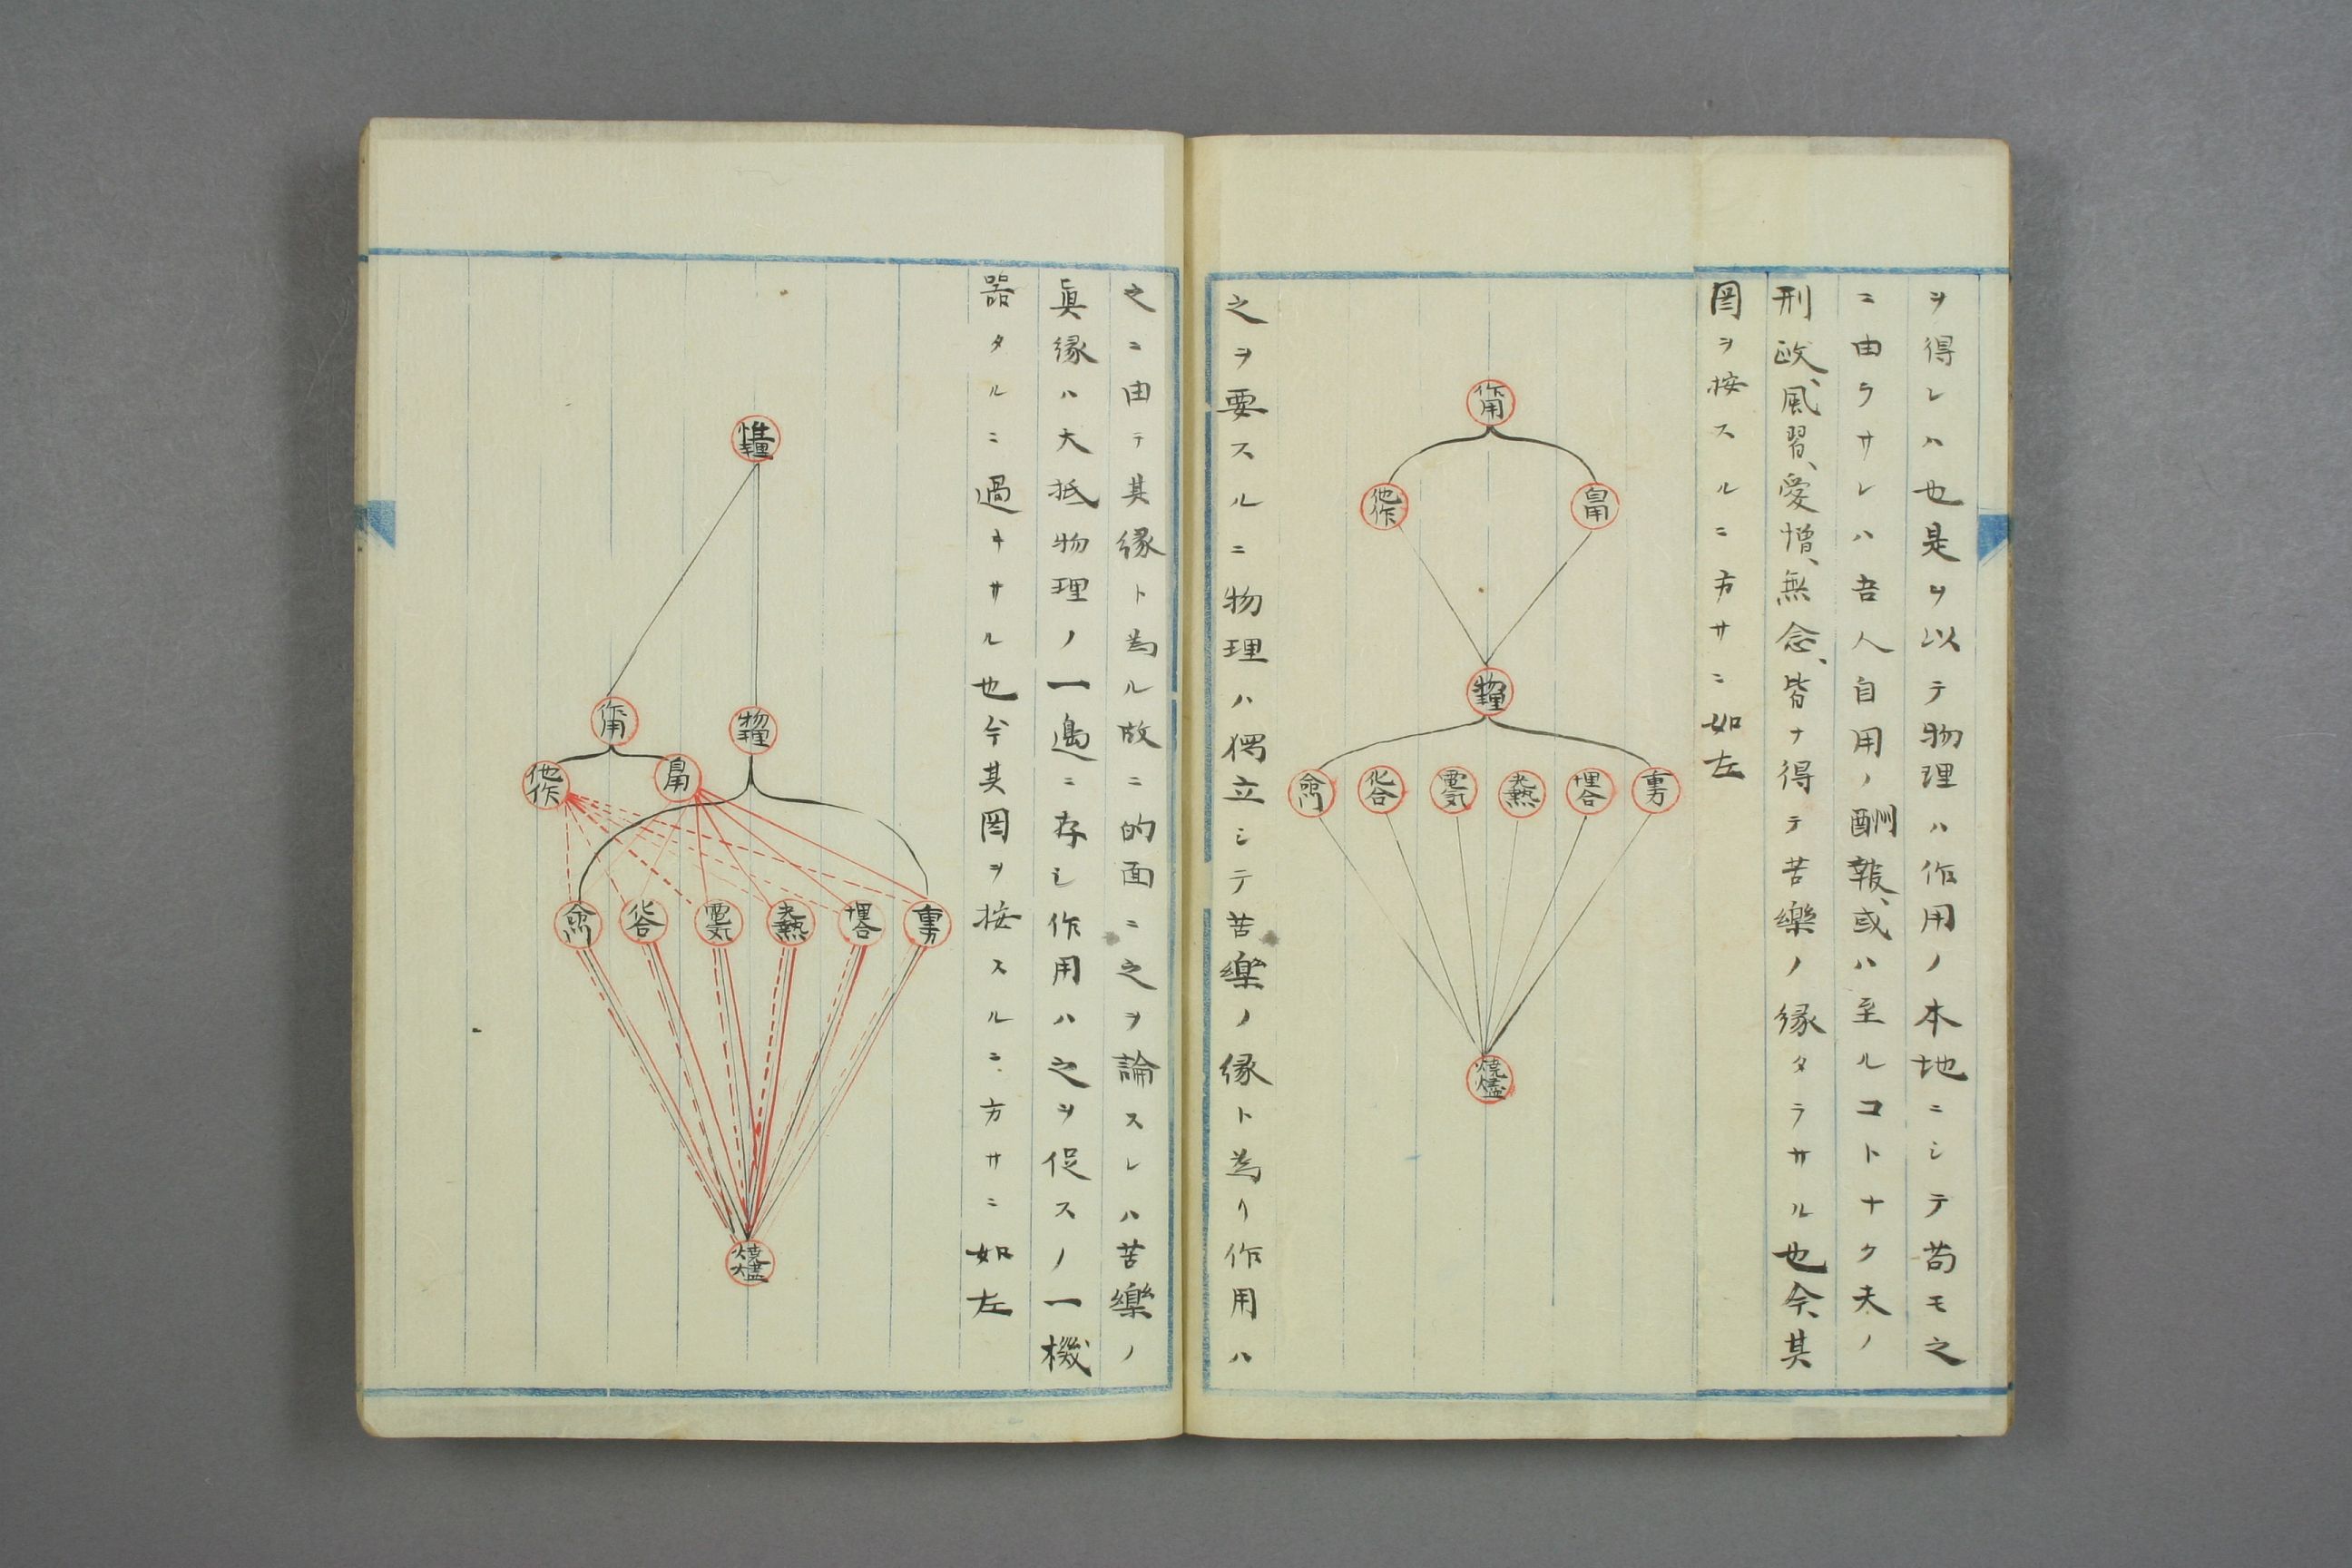 ヲ得レハ也是ヲ以テ物理ハ作用ノ本地ニシテ苟モ之
ニ由ラサレハ吾人自用ノ酬報、或ハ至ルコトナク夫ノ
刑政、風習、愛憎、無念、皆ナ得テ苦樂ノ縁タラサル也今、其
図ヲ按スルニ方サニ如左
作用
自用
他作
物理
重力
埋合
光熱
電気
化合
焼燼
之ヲ要スルニ物理ハ獨立シテ苦樂ノ縁ト為リ作用ハ
之ニ由テ其縁ト為ル故ニ的面ニ之ヲ論スレハ苦樂ノ
眞縁ハ大抵物理ノ一邊ニ存シ作用ハ之ヲ促スノ一機
器タルニ過キサル也今其図ヲ按スルニ方サニ如左
物理
作用
自用
他作
重力
埋合
光熱
電気
化合
焼燼